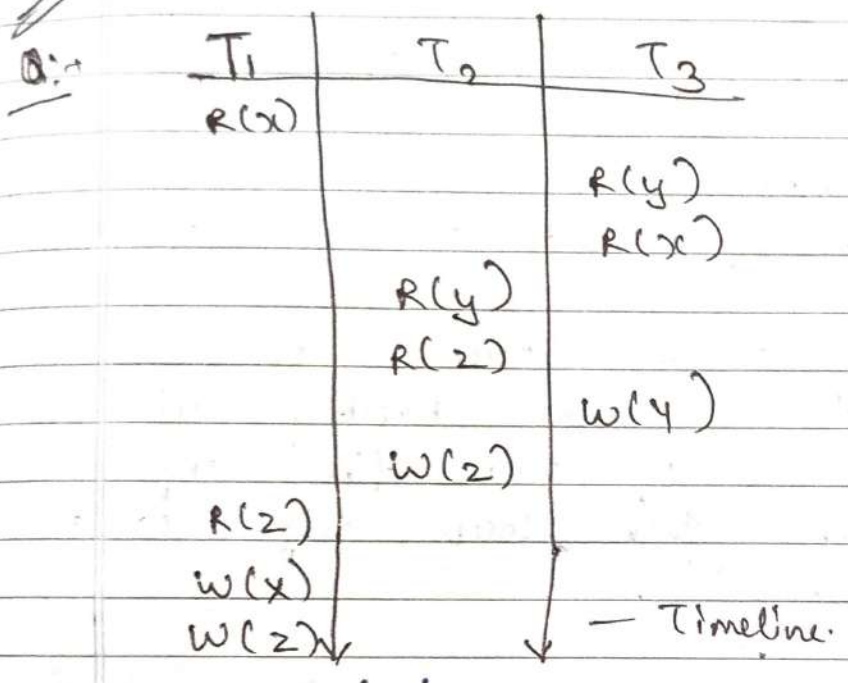 Q:-
T1 T2 T3
R(x)
R(y)
R(x)
R(y)
R(z)
W(y)
W(z)
R(z)
W(x)
W(z)
— Timeline.